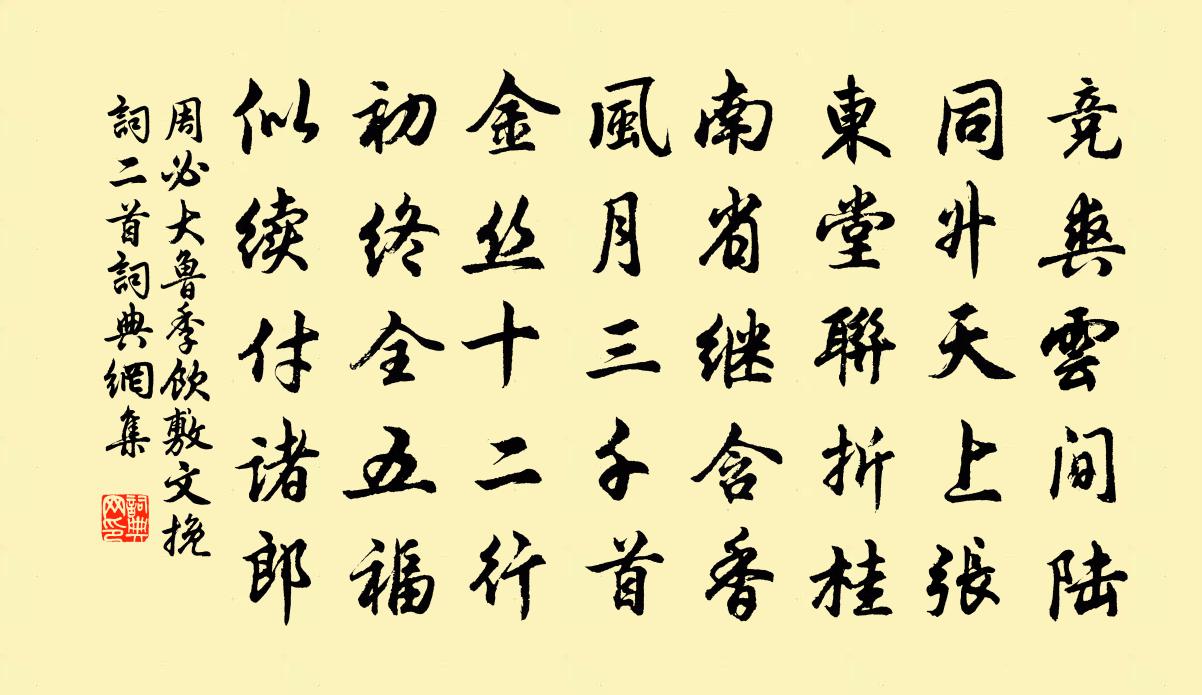 竞爽雲間陆
同升天上張
東堂聯折桂
南省继含香
風月三千首
金丝十二行
初終全五福
似续付諸郎
周必大魯季飲敷文挽
詞二首詞典網集
詞典
网印